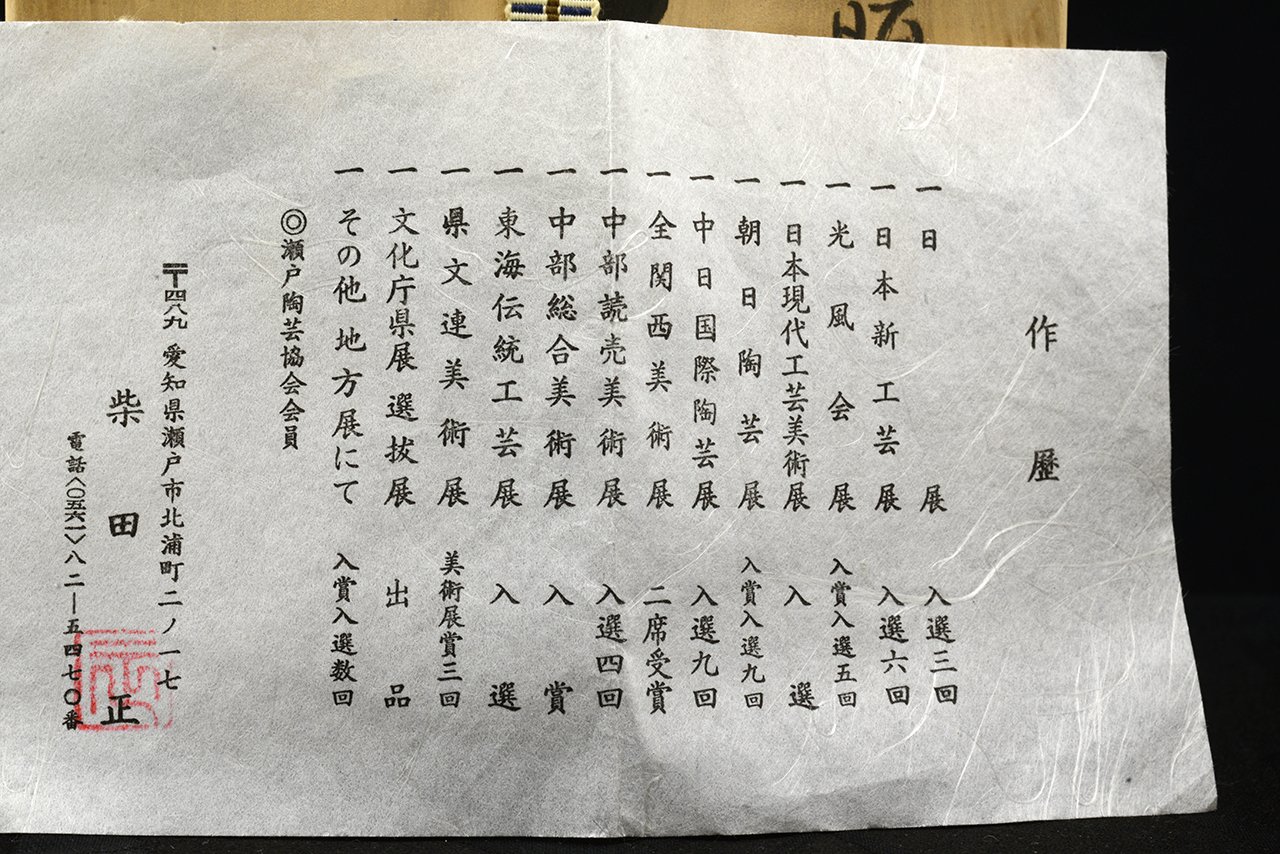 作歴
一 日展 入選三回
一 日本新工芸展 入選六回
一 光風会展 入賞入選五回
一 日本現代工芸美術展 入選
一 朝日陶芸展 入賞入選九回
一 中日国際陶芸展 入選九回
一 全関西美術展 二席受賞
一 中部読売美術展 入選四回
一 中部総合美術展 入賞
一 東海伝統工芸展 入選
一 県文連美術展 美術展賞三回
一 文化庁県展選抜展 出品
一 その他地方展にて 入賞入選数回
◎瀬戸陶芸協会会員
〒四八九 愛知県瀬戸市北浦町二ノ一七
柴田正
電話〈〇五六一〉八二―五四七〇番